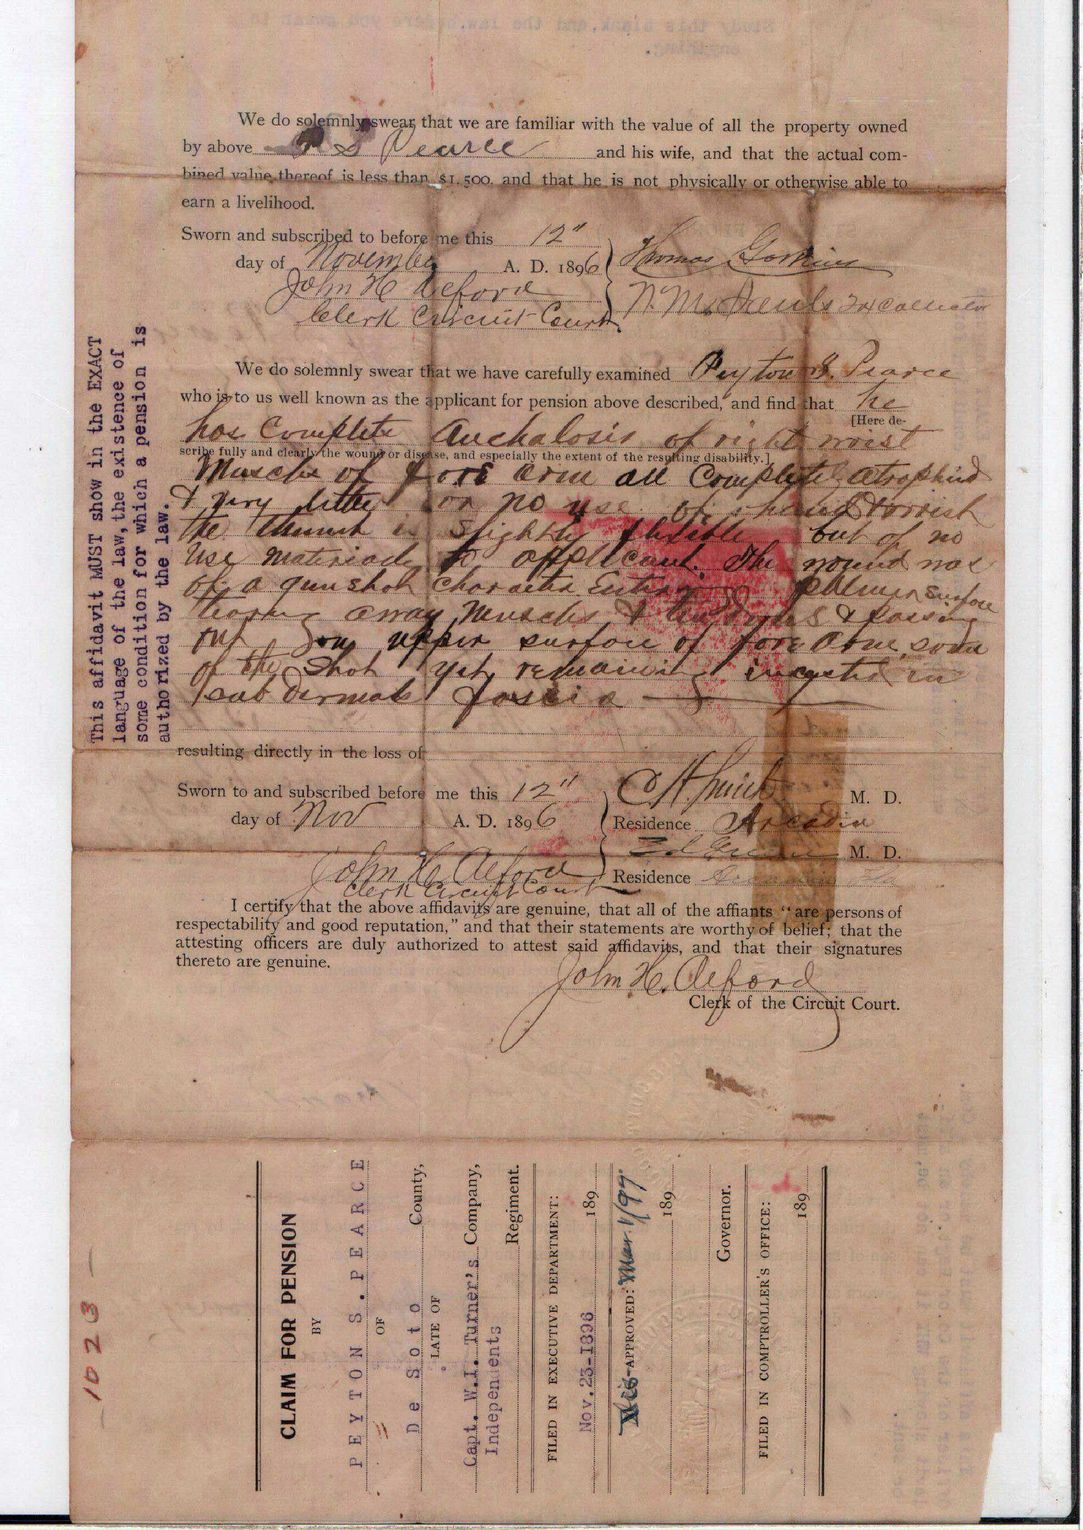 We do solemnly swear that we are familiar with the value of all the property owned
by above P S Pearce and his wife, and that the actual com-
bined value thereof is less than $1,500, and that he is not physically or otherwise able to
earn a livelihood.
Sworn and subscribed to before me this 12"
day of November A. D. 1896
John H Alford
Clerk Circuit Court
Thomas
N. M.
We do solemnly swear that we have carefully examined Peyton S. Pearce
who is to us well known as the applicant for pension above described, and find that he
[Here de-
has Complete Anchalosis of right wrist
scribe fully and clearly the wound or disease, and especially the extent of the resulting disability.]
Muscls of fore arm all Complete atrophied
& very little or no use of hand & wrist
the thumb is slightly flexible but of no
use materialy to applicant. The wound was
of a gun shot character Entering Palmer surface
tearing away Muscles & tendons & passing
out on upper surface of fore arm, some
of the shot yet remaining incysted in
sub dermal fascia
resulting directly in the loss of
Sworn to and subscribed before me this 12"
day of Nov A. D. 1896
John H. Alford
Clerk Circuit Court
C H Smith M. D.
Residence Arcadia
M. D.
Residence Arcadia Fla
I certify that the above affidavits are genuine, that all of the affiants "are persons of
respectability and good reputation," and that their statements are worthy of belief; that the
attesting officers are duly authorized to attest said affidavits, and that their signatures
thereto are genuine.
John H. Alford
Clerk of the Circuit Court.
This affidavit MUST show in the EXACT
language of the law, the existence of
some condition for which a pension is
authorized by the law.
1023
CLAIM FOR PENSION
BY
PEYTON S. PEARCE
OF
De Soto County,
LATE OF
Capt. W.I. Turner's Company,
Independents Regiment.
FILED IN EXECUTIVE DEPARTMENT:
Nov.23-1896 189
Dis-APPROVED: Mar 1/97
189
Governor.
FILED IN COMPTROLLER'S OFFICE:
189